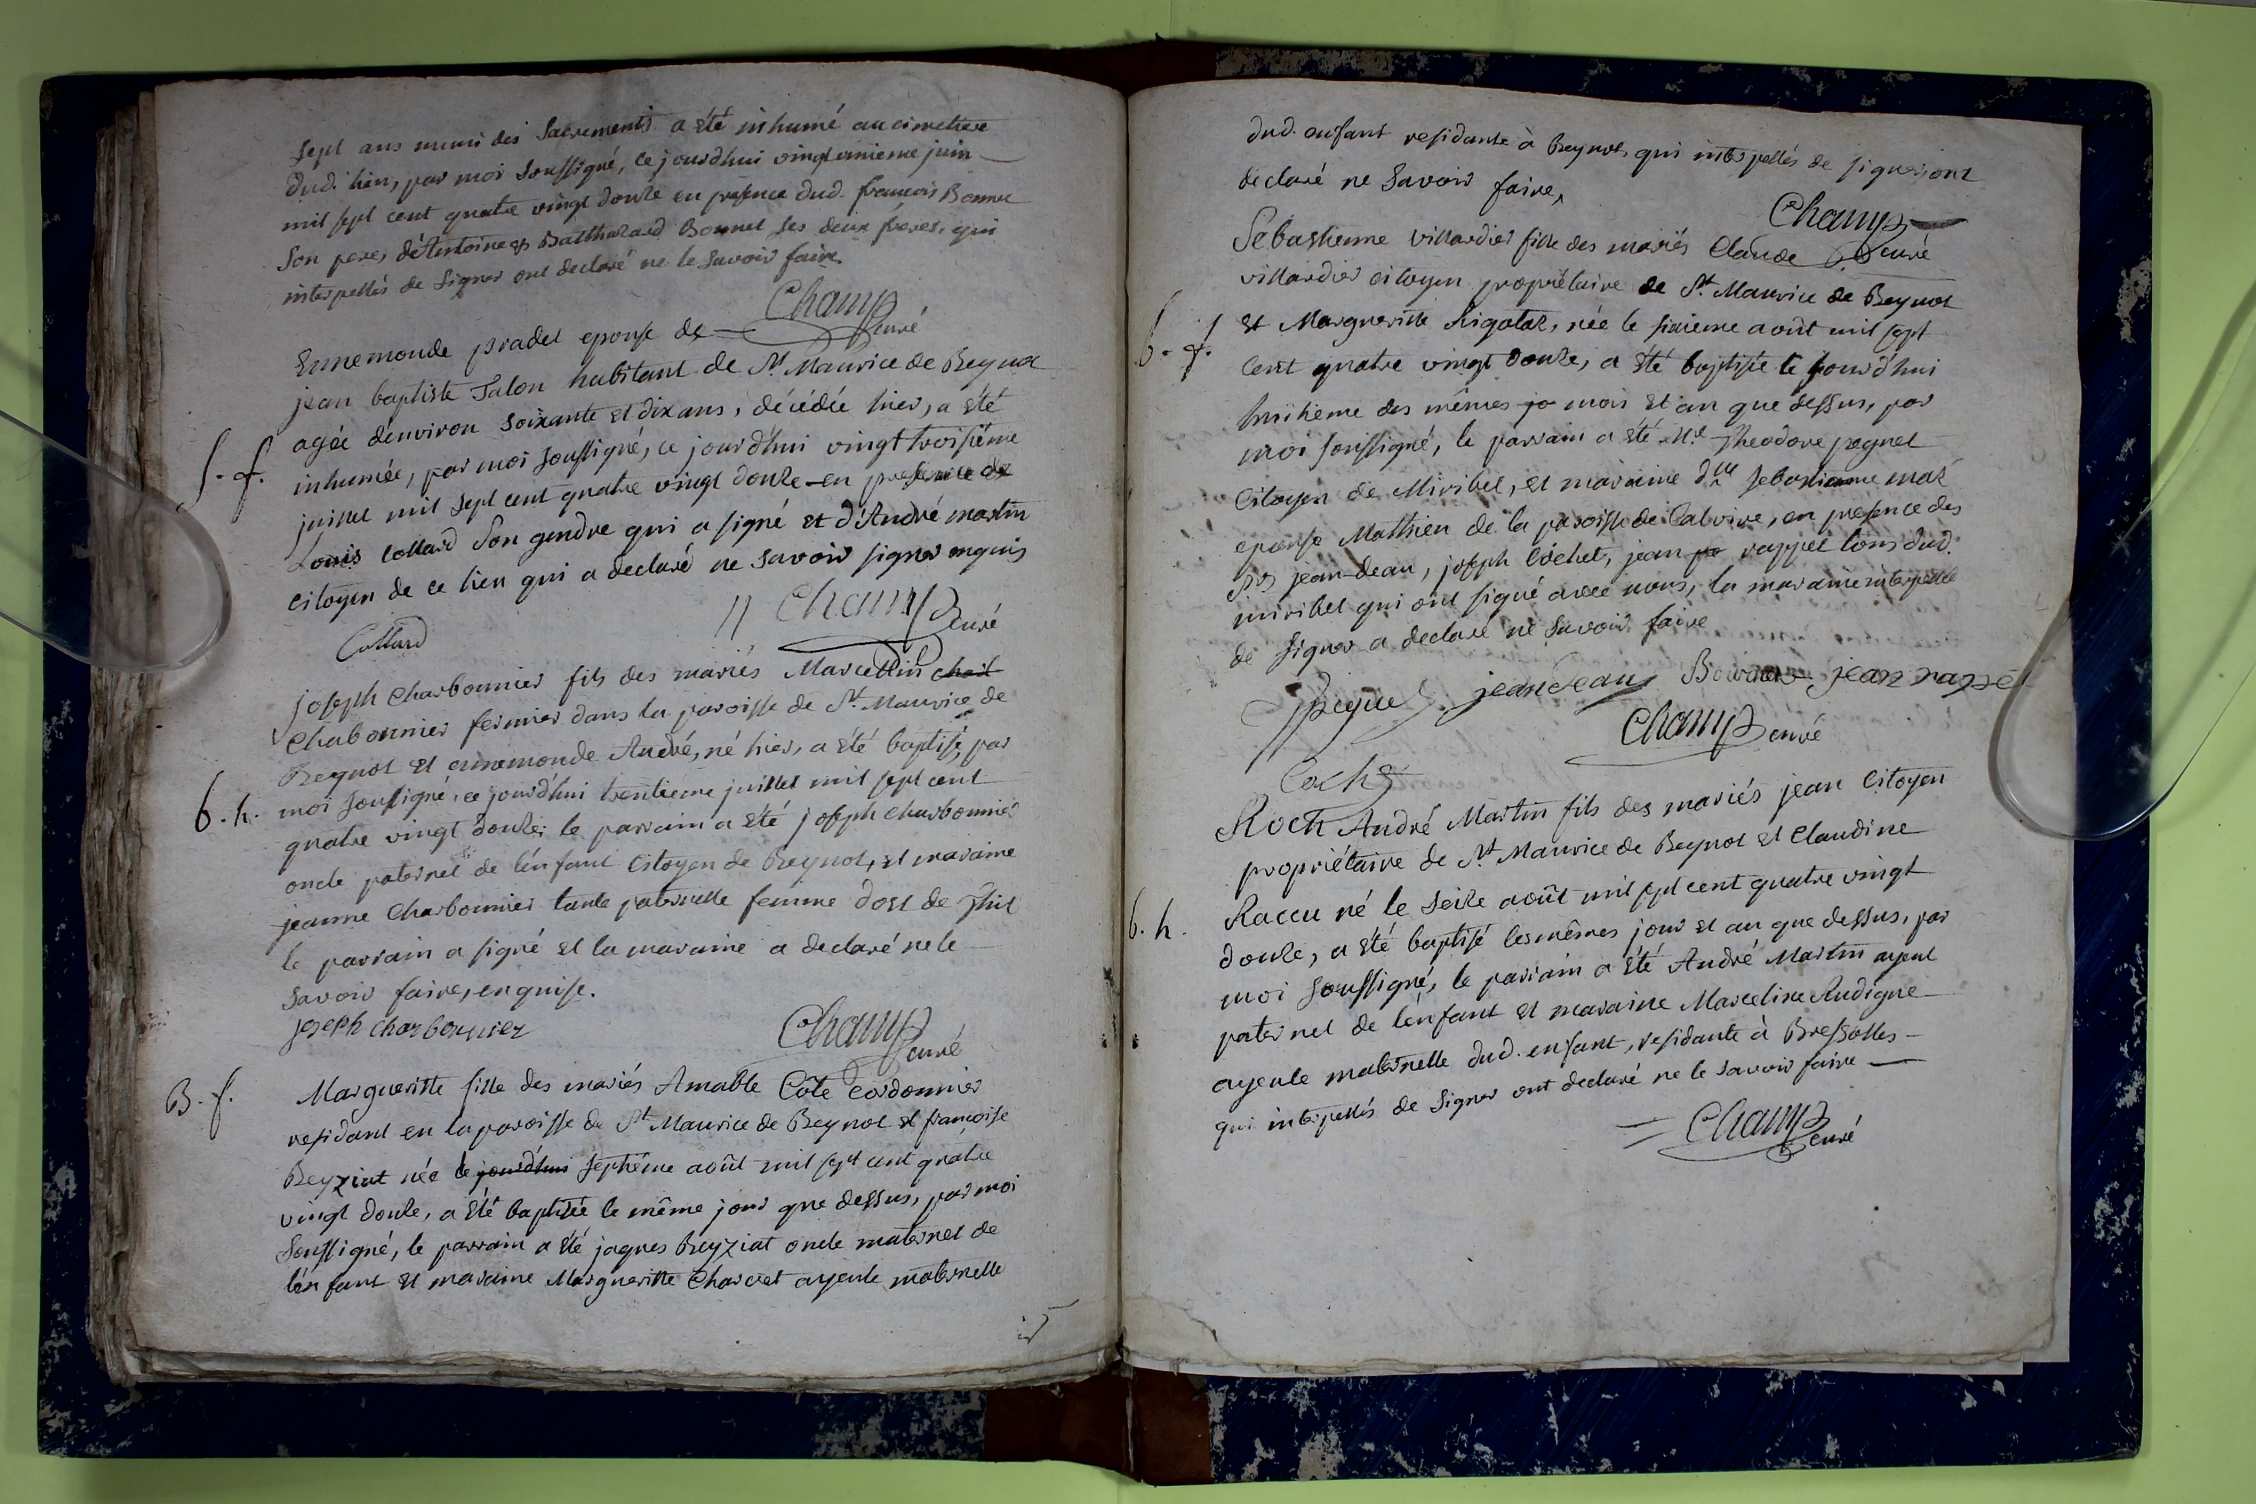 sept ans muni des Sacrements a été inhumé au cimetiere
dud. lieu, par moi Soussigné, ce jourdhui vingt unieme juin
mil sept cent quatre vingt douze en présence dud. francois Bonnet
Son pere, d'Antoine & Balthazard Bonnet ses deux freres, qui
interpellés de Signer ont declaré ne le Savoir faire.
Champ curé
Ennemonde pradel epouse de
jean baptiste Talon habitant de St Maurice de Beynot
agée d'environ soixante et dix ans, décédée hier, a été
S. f.
inhumée, par moi soussigné, ce jourd'hui vingt troisiéme
juillet mil sept cent quatre vingt douze en presence de
Louis Collard Son gendre qui a signé et d'André martin
citoyen de ce lieu qui a declaré ne savoir signer enquis
Collard
Champ curé
joseph Charbonnier fils des mariés Marcellin
Chabonnier fermier dans la paroisse de St. Maurice de
Beynot et ennemonde André, né hier, a été baptisé, par
b. h.
moi soussigné, ce jourd'hui trentieme juillet mil sept cent
quatre vingt douze; le parrain a été joseph charbonnier
oncle paternel de l'enfant Citoyen de Beynot, et maraine
jeanne Charbonnier tante paternelle femme d'ost de Thil
le parrain a signé et la maraine a declaré ne le
savoir faire, enquise.
joseph charbonnier
Champ curé
B. f.
Margueritte fille des mariés Amable Côte Cordonnier
residant en la paroisse de St Maurice de Beynot et françoise
Beyziat née le jourd'hui septiême août mil sept cent quatre
vingt douze, a été baptisée le même jour que dessus, par moi
Soussigné, le parrain a été jaques Beyziat oncle maternel de
l'enfant et maraine Margueritte Charvet ayeule maternelle
dud. enfant residante à Beynot, qui interpellés de signer ont
declaré ne Savoir faire,
Champ curé
Sébastienne Villardier fille des mariés Claude
villardier citoyen propriétaire de St. Maurice de Beynot
b. f.
et Margueritte Rigolat, née le sixieme août mil sept
cent quatre vingt douze, a été baptisée le jourd'hui
huitieme des mêmes jo mois et an que dessus, par
moi soussigné, le parrain a été Mre Theodore pegnet
Citoyen de Miribel, et maraine dlle sebastienne
epouse Mathieu de la paroisse de Caluire, en presence des
Srs jean-deau, joseph Cochet, jean pa rappet tous dud.
miribel qui ont signé avec nous, la maraine interpellée
de signer a declaré ne savoir faire
jeandeau jean rappé
Champ curé
Coche
Roch André Martin fils des mariés jean Citoyen
propriétaire de St Maurice de Beynot et Claudine
b. h.
Raccu né le seize août mil sept cent quatre vingt
douze, a été baptisé les mêmes jour et an que dessus, par
moi soussigné, le parrain a été André Martin ayeul
paternel de l'enfant et maraine Marceline Audigne
ayeule maternelle dud. enfant, residante à Bressolles
qui interpellés de signer ont declaré ne le savoir faire
Champ curé